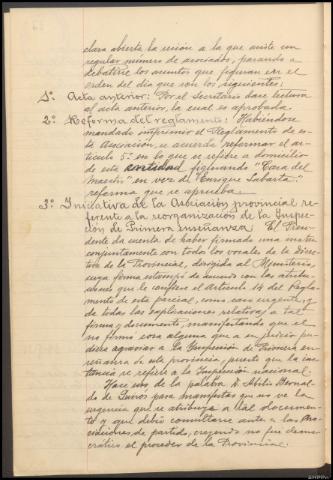 clara abierta la sesión a la que asiste un
regular número de asociados, pasando a
debatirse los asuntos que figuran en el
orden del día que son los siguientes:
1º- Acta anterior: Por el Secretario dase lectura
al acta anterior, la cual es aprobada.
2º- Reforma del reglamento: Habiéndose
mandado imprimir el Reglamento de es-
ta Asociación, se acuerda reformar el ar-
tículo 5º en lo que se refiere a domicilio
de esta entidad figurando "Casa del
Maestro" en vez de "Enrique Labarta",
reforma que se aprueba.
3º- Iniciativa de la Asociación provincial re-
ferente a la reorganización de la Inspec-
ción de Primera enseñanza: El Presi-
dente da cuenta de haber firmado una
conjuntamente con todos los vocales de la Direc-
tiva de la Provincial, dirigida al Ministerio,
cuya firma estampó de acuerdo con las atribu-
ciones que le confiere el Artículo 14 del Regla-
mento de esta parcial, como caso urgente, y
da todas las explicaciones relativas a tal
forma y documento, manifestando que el
no firmó cosa alguna que a su juicio pu-
diera agraviar a la Inspección de Primera en-
señanza de esta provincia, puesto que la ins-
tancia se refería a la Inspección nacional.
Hace uso de la palabra D. Abilio Bernal-
do de Quirós para manifestar que no ve la
urgencia que se atribuye a tal documen-
to y que debió consultarse antes a las Aso-
ciaciones de partido, creyendo no fué demo-
crático el proceder de la Provincial.